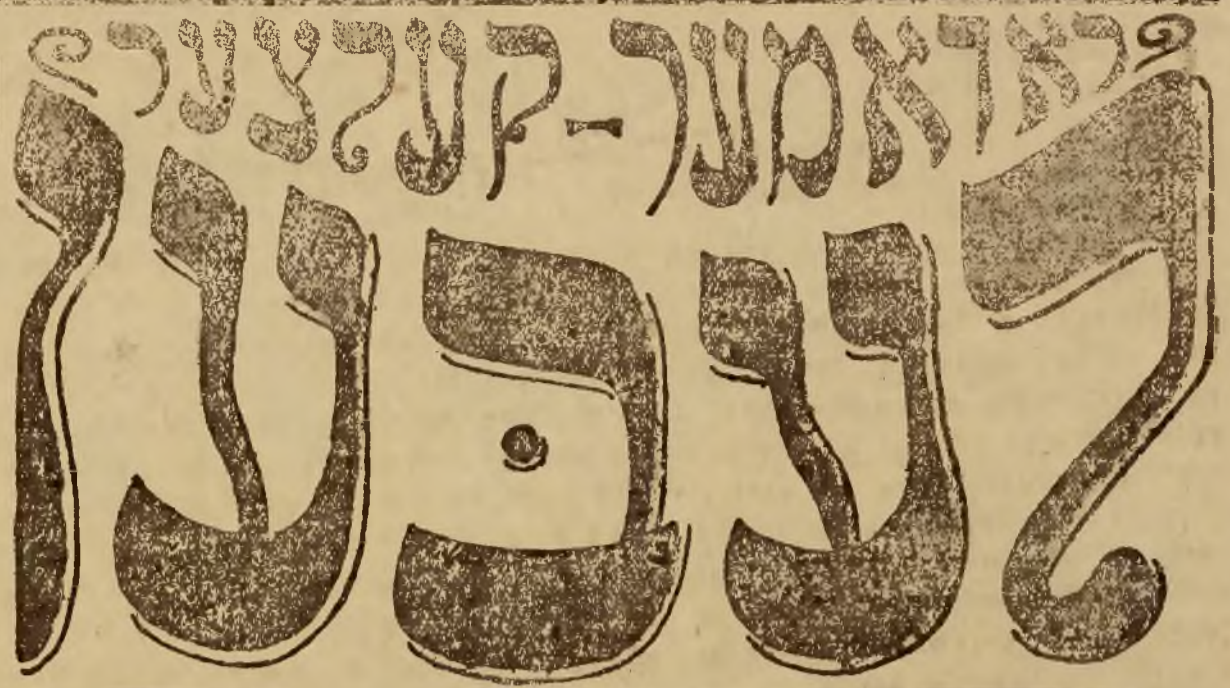 ראדאמער-קעלצער
לעבּען